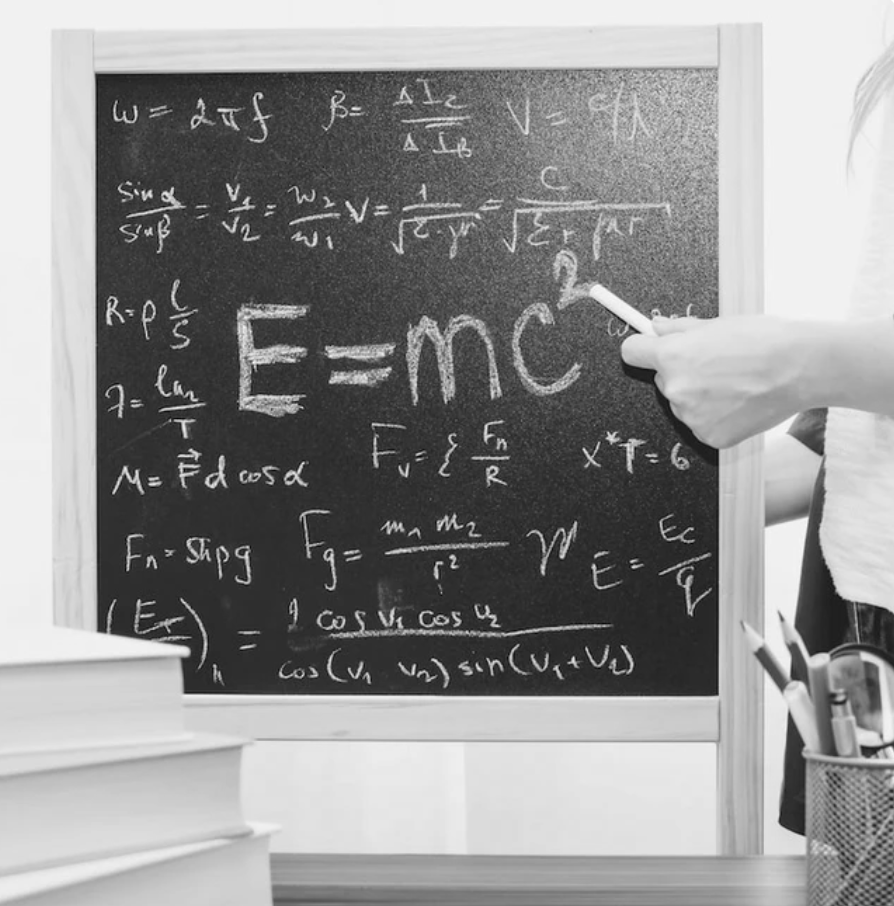 ω = 2πf β = ΔI₂/ΔI_B V = c/λ
sinα/sinβ = v₁/v₂ = w₂/w₁ V = 1/√ε·μ = C/√εr μr
R = ρ l/S
E = mc²
λ = ln₂/T
Fᵥ = ξ Fₙ/R x*T = 6
M = F⃗ d cos α
Fₙ = Shpg Fg = m₁ m₂/r² E = Ec/q
= 1 cos v₁ cos v₂/cos(v₁ v₂) sin(v₁+v₂)